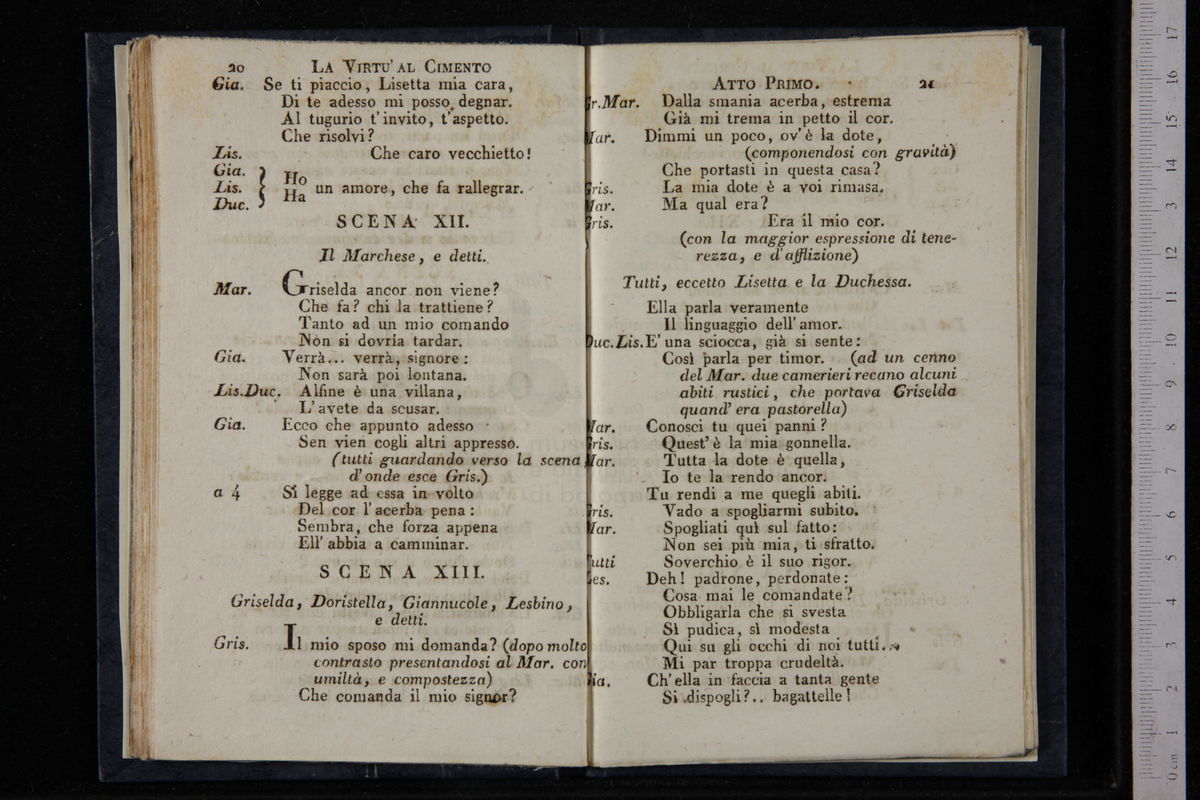 20 LA VIRTU' AL CIMENTO
Gia. Se ti piaccio, Lisetta mia cara,
Di te adesso mi posso degnar.
Al tugurio t'invito, t'aspetto.
Che risolvi?
Lis. Che caro vecchietto!
Gia.
Lis. } Ho Ha un amore, che fa rallegrar.
Duc.
SCENA XII.
Il Marchese, e detti.
Mar. Griselda ancor non viene?
Che fa? chi la trattiene?
Tanto ad un mio comando
Non si dovria tardar.
Gia. Verrà... verrà, signore:
Non sarà poi lontana.
Lis.Duc. Alfine è una villana,
L'avete da scusar.
Gia. Ecco che appunto adesso
Sen vien cogli altri appresso.
(tutti guardando verso la scena
d'onde esce Gris.)
a 4 Si legge ad essa in volto
Del cor l'acerba pena:
Sembra, che forza appena
Ell' abbia a camminar.
SCENA XIII.
Griselda, Doristella, Giannucole, Lesbino,
e detti.
Gris. Il mio sposo mi domanda? (dopo molto
contrasto presentandosi al Mar. con
umiltà, e compostezza)
Che comanda il mio signor?
ATTO PRIMO. 21
Gr.Mar. Dalla smania acerba, estrema
Già mi trema in petto il cor.
Mar. Dimmi un poco, ov'è la dote,
(componendosi con gravità)
Che portasti in questa casa?
Gris. La mia dote è a voi rimasa.
Mar. Ma qual era?
Gris. Era il mio cor.
(con la maggior espressione di tene-
rezza, e d'afflizione)
Tutti, eccetto Lisetta e la Duchessa.
Ella parla veramente
Il linguaggio dell'amor.
Duc.Lis. E' una sciocca, già si sente:
Così parla per timor. (ad un cenno
del Mar. due camerieri recano alcuni
abiti rustici, che portava Griselda
quand' era pastorella)
Mar. Conosci tu quei panni?
Gris. Quest' è la mia gonnella.
Mar. Tutta la dote è quella,
Io te la rendo ancor.
Tu rendi a me quegli abiti.
Gris. Vado a spogliarmi subito.
Mar. Spogliati quì sul fatto:
Non sei più mia, ti sfratto.
Tutti Soverchio è il suo rigor.
Les. Deh! padrone, perdonate:
Cosa mai le comandate?
Obbligarla che si svesta
Sì pudica, sì modesta
Qui su gli occhi di noi tutti..
Mi par troppa crudeltà.
Gia. Ch'ella in faccia a tanta gente
Si dispogli?.. bagattelle!